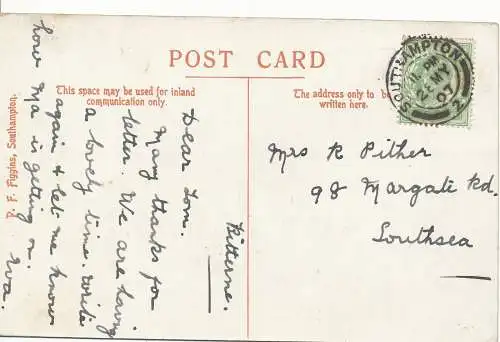 POST CARD
This space may be used for inland
communication only.
The address only to be
written here.
P. F. Figgins, Southampton.
SOUTHAMPTON
11. PM
MY
07
2
Bitterne.
Dear Tom.
Many thanks for
letter. We are having
a lovely time. Write
again & let me know
how Ma is getting on.
Eva.
Mrs R Pither
98 Margate Rd.
Southsea